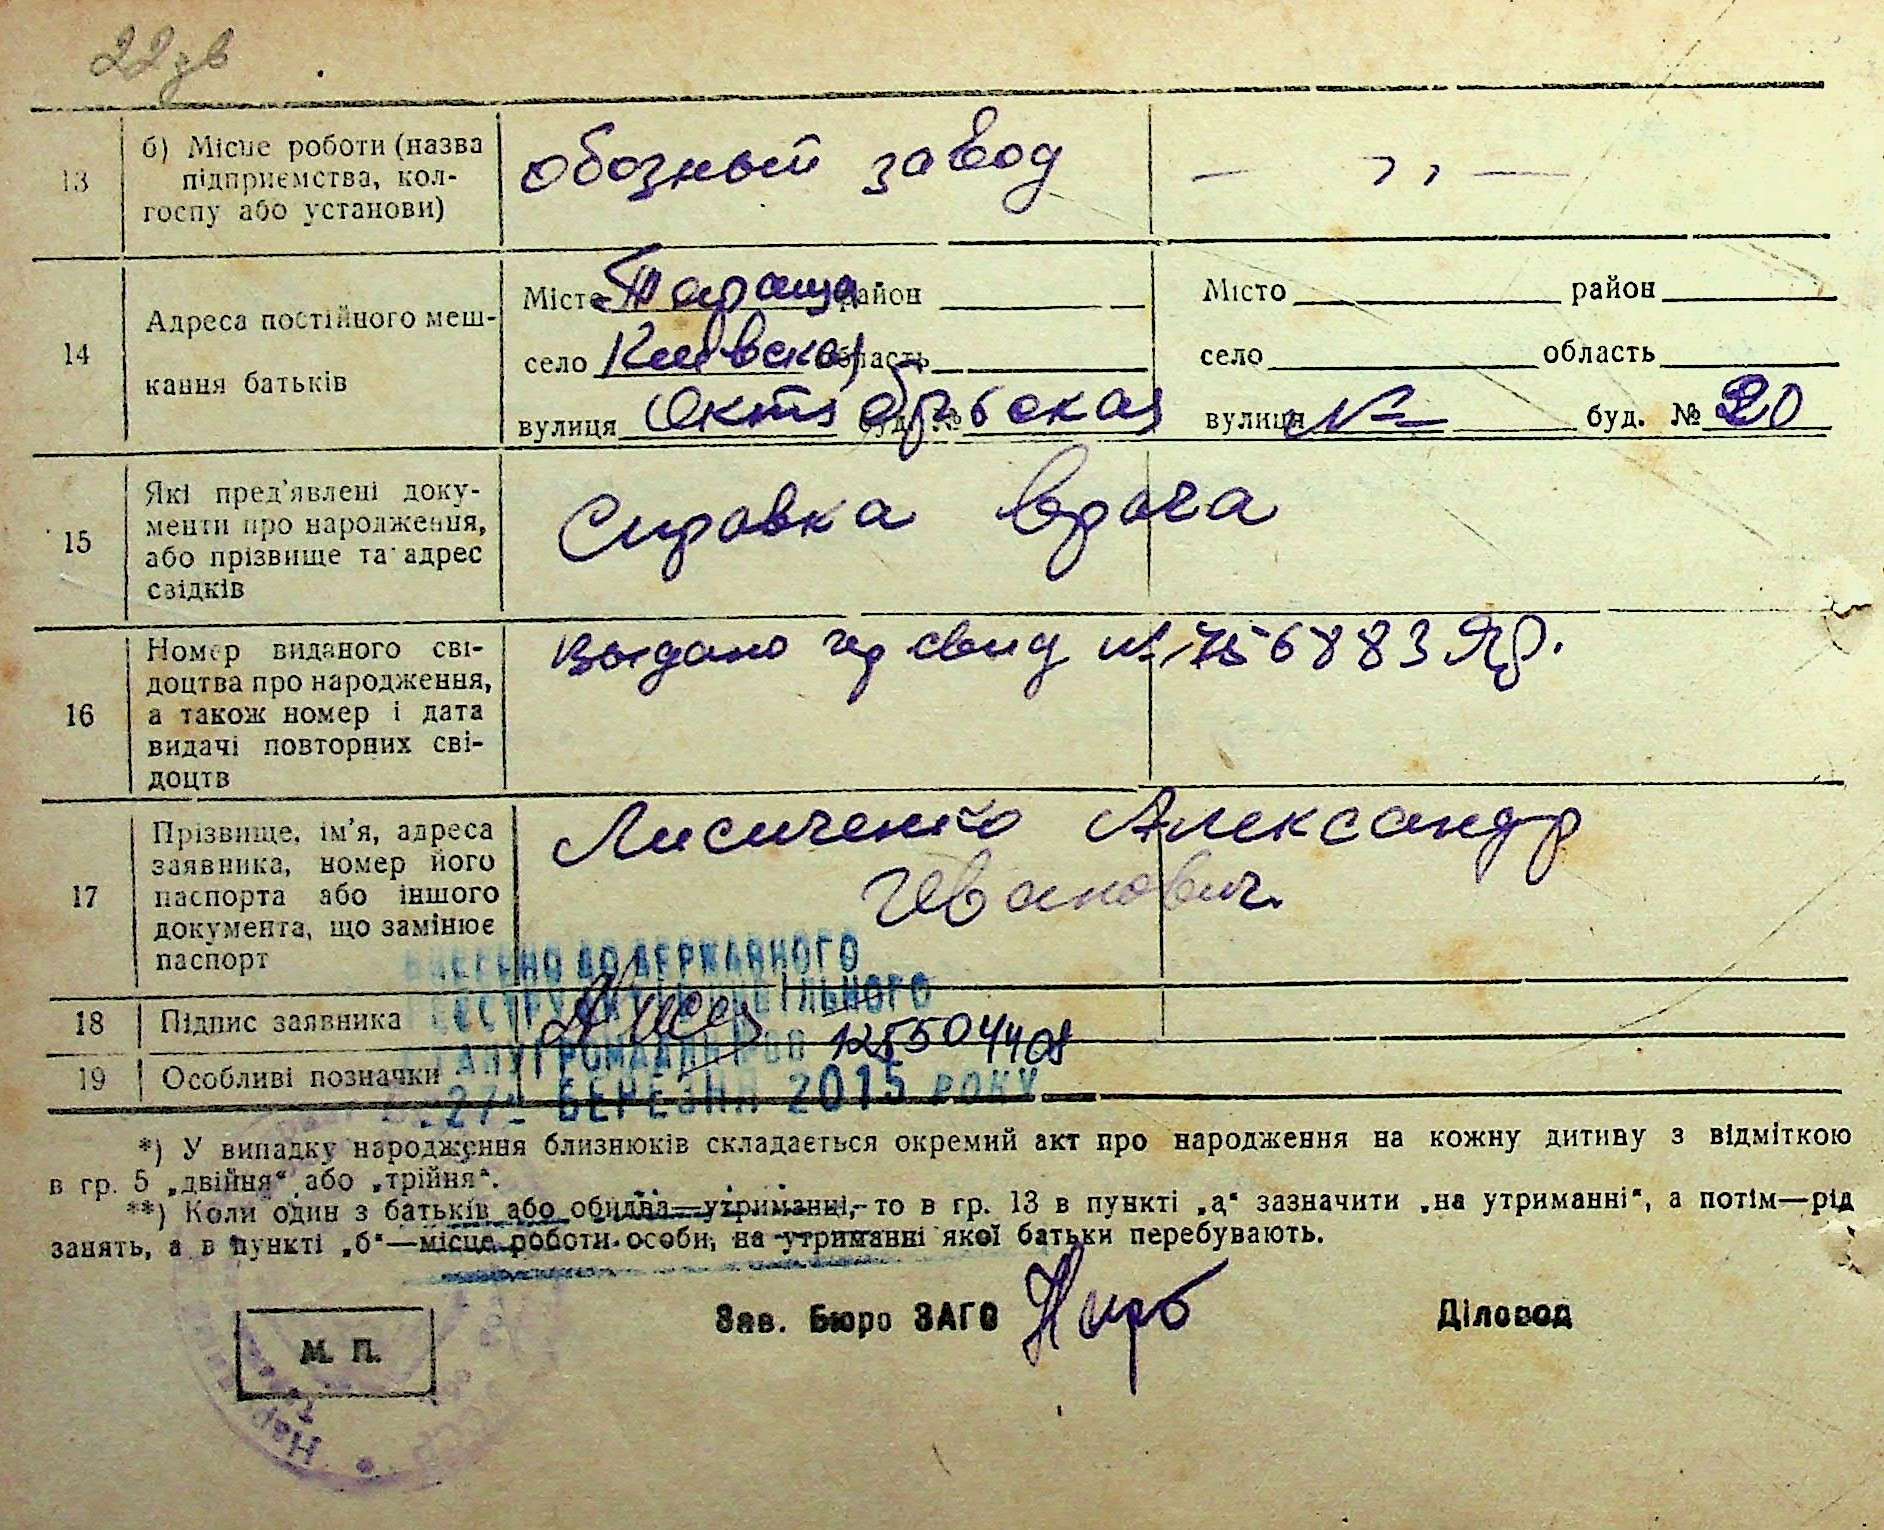 22 зв
13 б) Місце роботи (назва підприємства, кол-госпу або установи) Обозный завод — ,, —
14 Адреса постійного меш-кання батьків
Місто Тараща район Місто район
село Киевская область село область
вулиця Октябрьская буд. № вулиця № буд. № 20
15 Які пред'явлені доку-
менти про народження,
або прізвище та адрес
свідків
Справка врача
16 Номер виданого сві-
доцтва про народження,
а також номер і дата
видачі повторних сві-
доцтв
Выдано свид № 756883 ЯР.
17 Прізвище, ім'я, адреса
заявника, номер його
паспорта або іншого
документа, що замінює
паспорт
Лисиченко Александр
Иванович.
ВНЕСЕНО ДО ДЕРЖАВНОГО
РЕЄСТРУ АКТІВ ЦИВІЛЬНОГО
18 Підпис заявника
СТАНУ ГРОМАДЯН
19 Особливі позначки
27 БЕРЕЗНЯ 2015 РОКУ
*) У випадку народження близнюків складається окремий акт про народження на кожну дитину з відміткою
в гр. 5 „двійня“ або „трійня“.
**) Коли один з батьків або обидва—утриманні,-то в гр. 13 в пункті „а“ зазначити „на утриманні“, а потім—рід
занять, а в пункті „б“—місце роботи особи, на утриманні якої батьки перебувають.
Зав. Бюро ЗАГС Діловод
М. П.